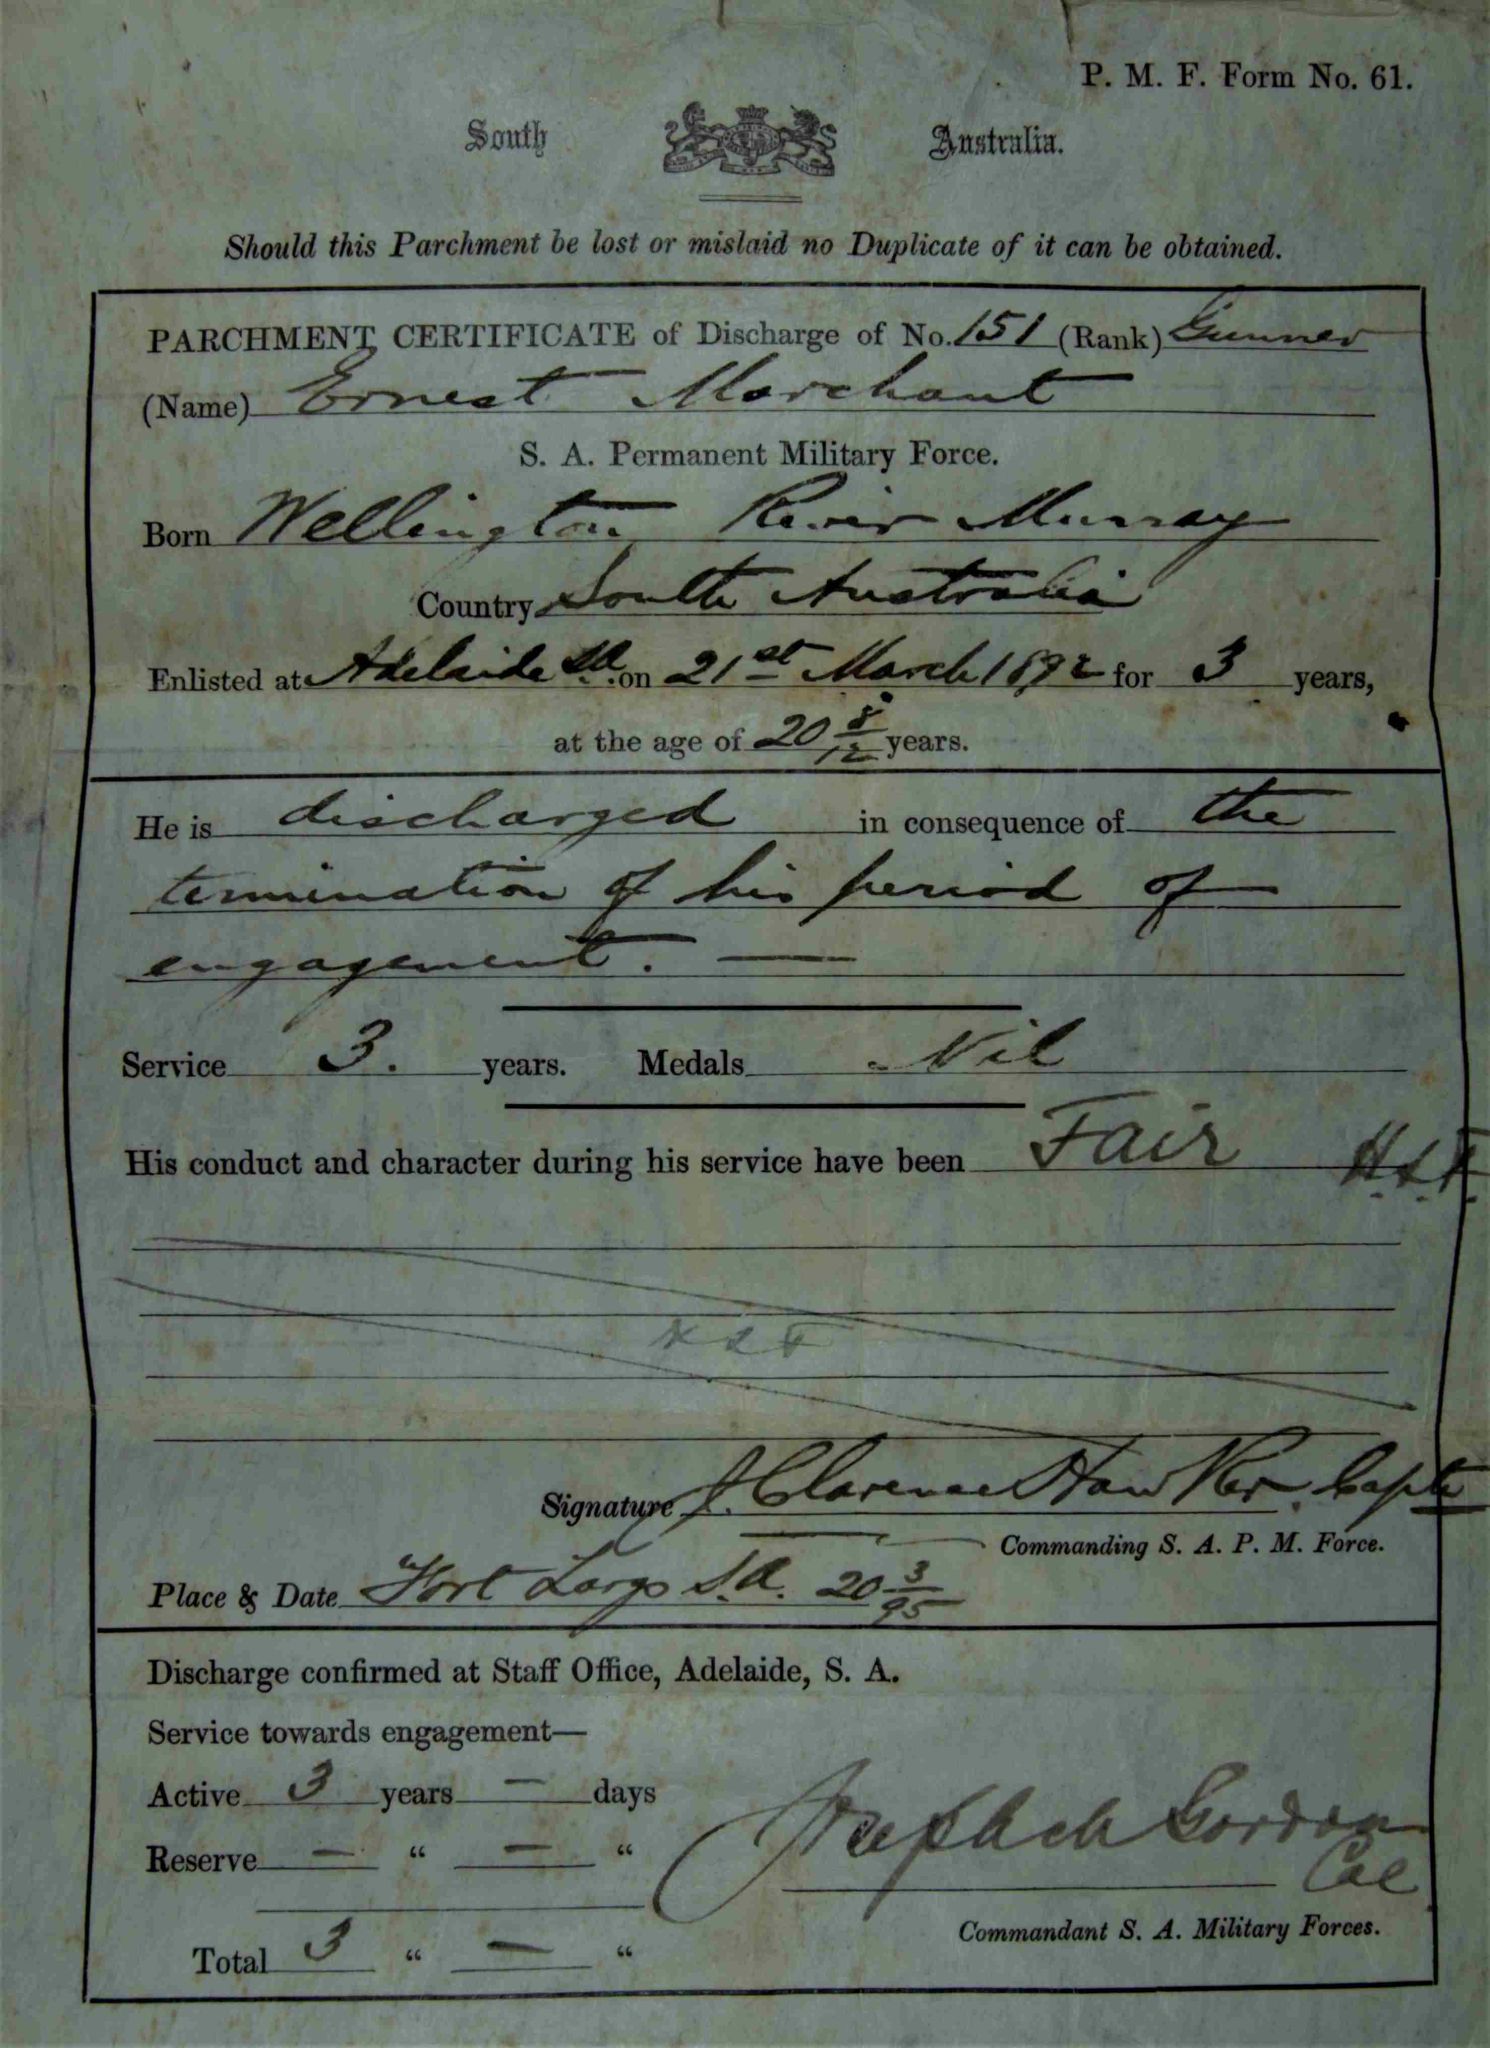 P. M. F. Form No. 61.
South Australia.
Should this Parchment be lost or mislaid no Duplicate of it can be obtained.
PARCHMENT CERTIFICATE of Discharge of No. 151 (Rank) Gunner
(Name) Ernest Marchant
S. A. Permanent Military Force.
Born Wellington River Murray
Country South Australia
Enlisted at Adelaide SA on 21st March 1892 for 3 years,
at the age of 20 8/12 years.
He is discharged in consequence of the
termination of his period of
engagement. —
Service 3. years. Medals Nil
His conduct and character during his service have been Fair
Signature J. Clarence Hawker. Captn
Commanding S. A. P. M. Force.
Place & Date Fort Largs S.A. 20 3/95
Discharge confirmed at Staff Office, Adelaide, S. A.
Service towards engagement—
Active 3 years — days
Reserve — “ — “
Gordon
Col
Total 3 “ — “
Commandant S. A. Military Forces.